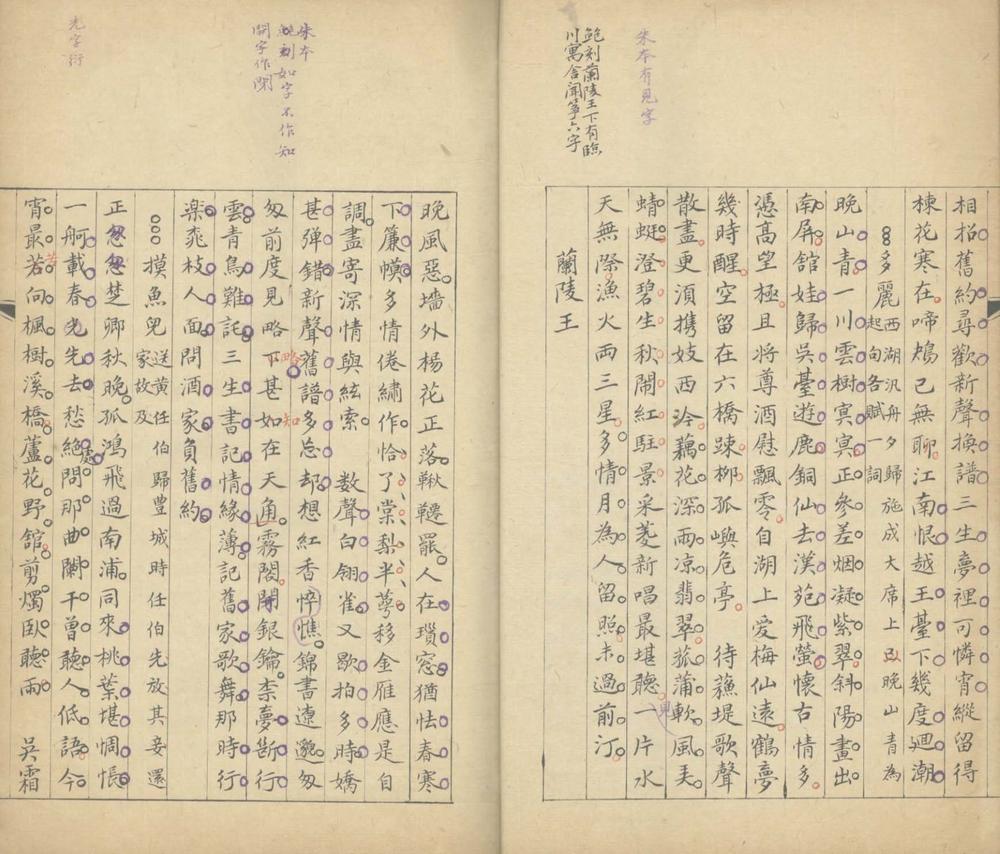 朱本有見字
鮑刻蘭陵王下有臨
川寓舍聞箏六字
相招舊約尋歡新聲換譜三生夢裡可憐宵縱留得
棟花寒在啼鴂已無聊江南恨越王臺下幾度迴潮
多麗
西湖汎舟夕歸施成大席上以晚山青為
起句各賦一詞
晚山青一川雲樹冥冥正參差烟凝紫翠斜陽畫出
南屏館娃歸吳臺遊鹿銅仙去漢苑飛螢懷古情多
憑高望極且將尊酒慰飄零自湖上愛梅仙遠鶴夢
幾時醒空留在六橋踈柳孤嶼危亭 待蘓堤歌聲
散盡更須携妓西泠藕花深雨凉翡翠菰蒲軟風美
蜻蜓澄碧生秋鬧紅駐景采菱新唱最堪聽一片水
見
天無際漁火兩三星多情月為人留照未過前汀
蘭陵王
朱本
鮑刻如字不作知
開字作閉
光字衍
晚風惡墻外楊花正落鞦韆罷人在瑣窓猶怯春寒
下簾幙多情倦繡作恰了棠梨半萼移金雁應是自
調盡寄深情與絃索 数聲白翎雀又歇拍多時嬌
甚彈錯新聲舊譜多忘却想紅香悴憔錦書遼邈匆
匆前度見略下甚如在天角霧閣開銀鑰柰夢断行
略
知
雲青鳥難託三生書記情緣薄記舊家歌舞那時行
楽窕枝人面問酒家負舊約
摸魚兒
送黃任伯歸豊城時任伯先放其妾還
家故及
正忽忽楚卿秋晚孤鴻飛過南浦同來桃葉堪惆悵
一舸載春光先去愁絕問那曲闌干曽聽人低語今
處
宵最若向楓樹溪橋蘆花野館剪燭臥聽雨 吳霜
苦